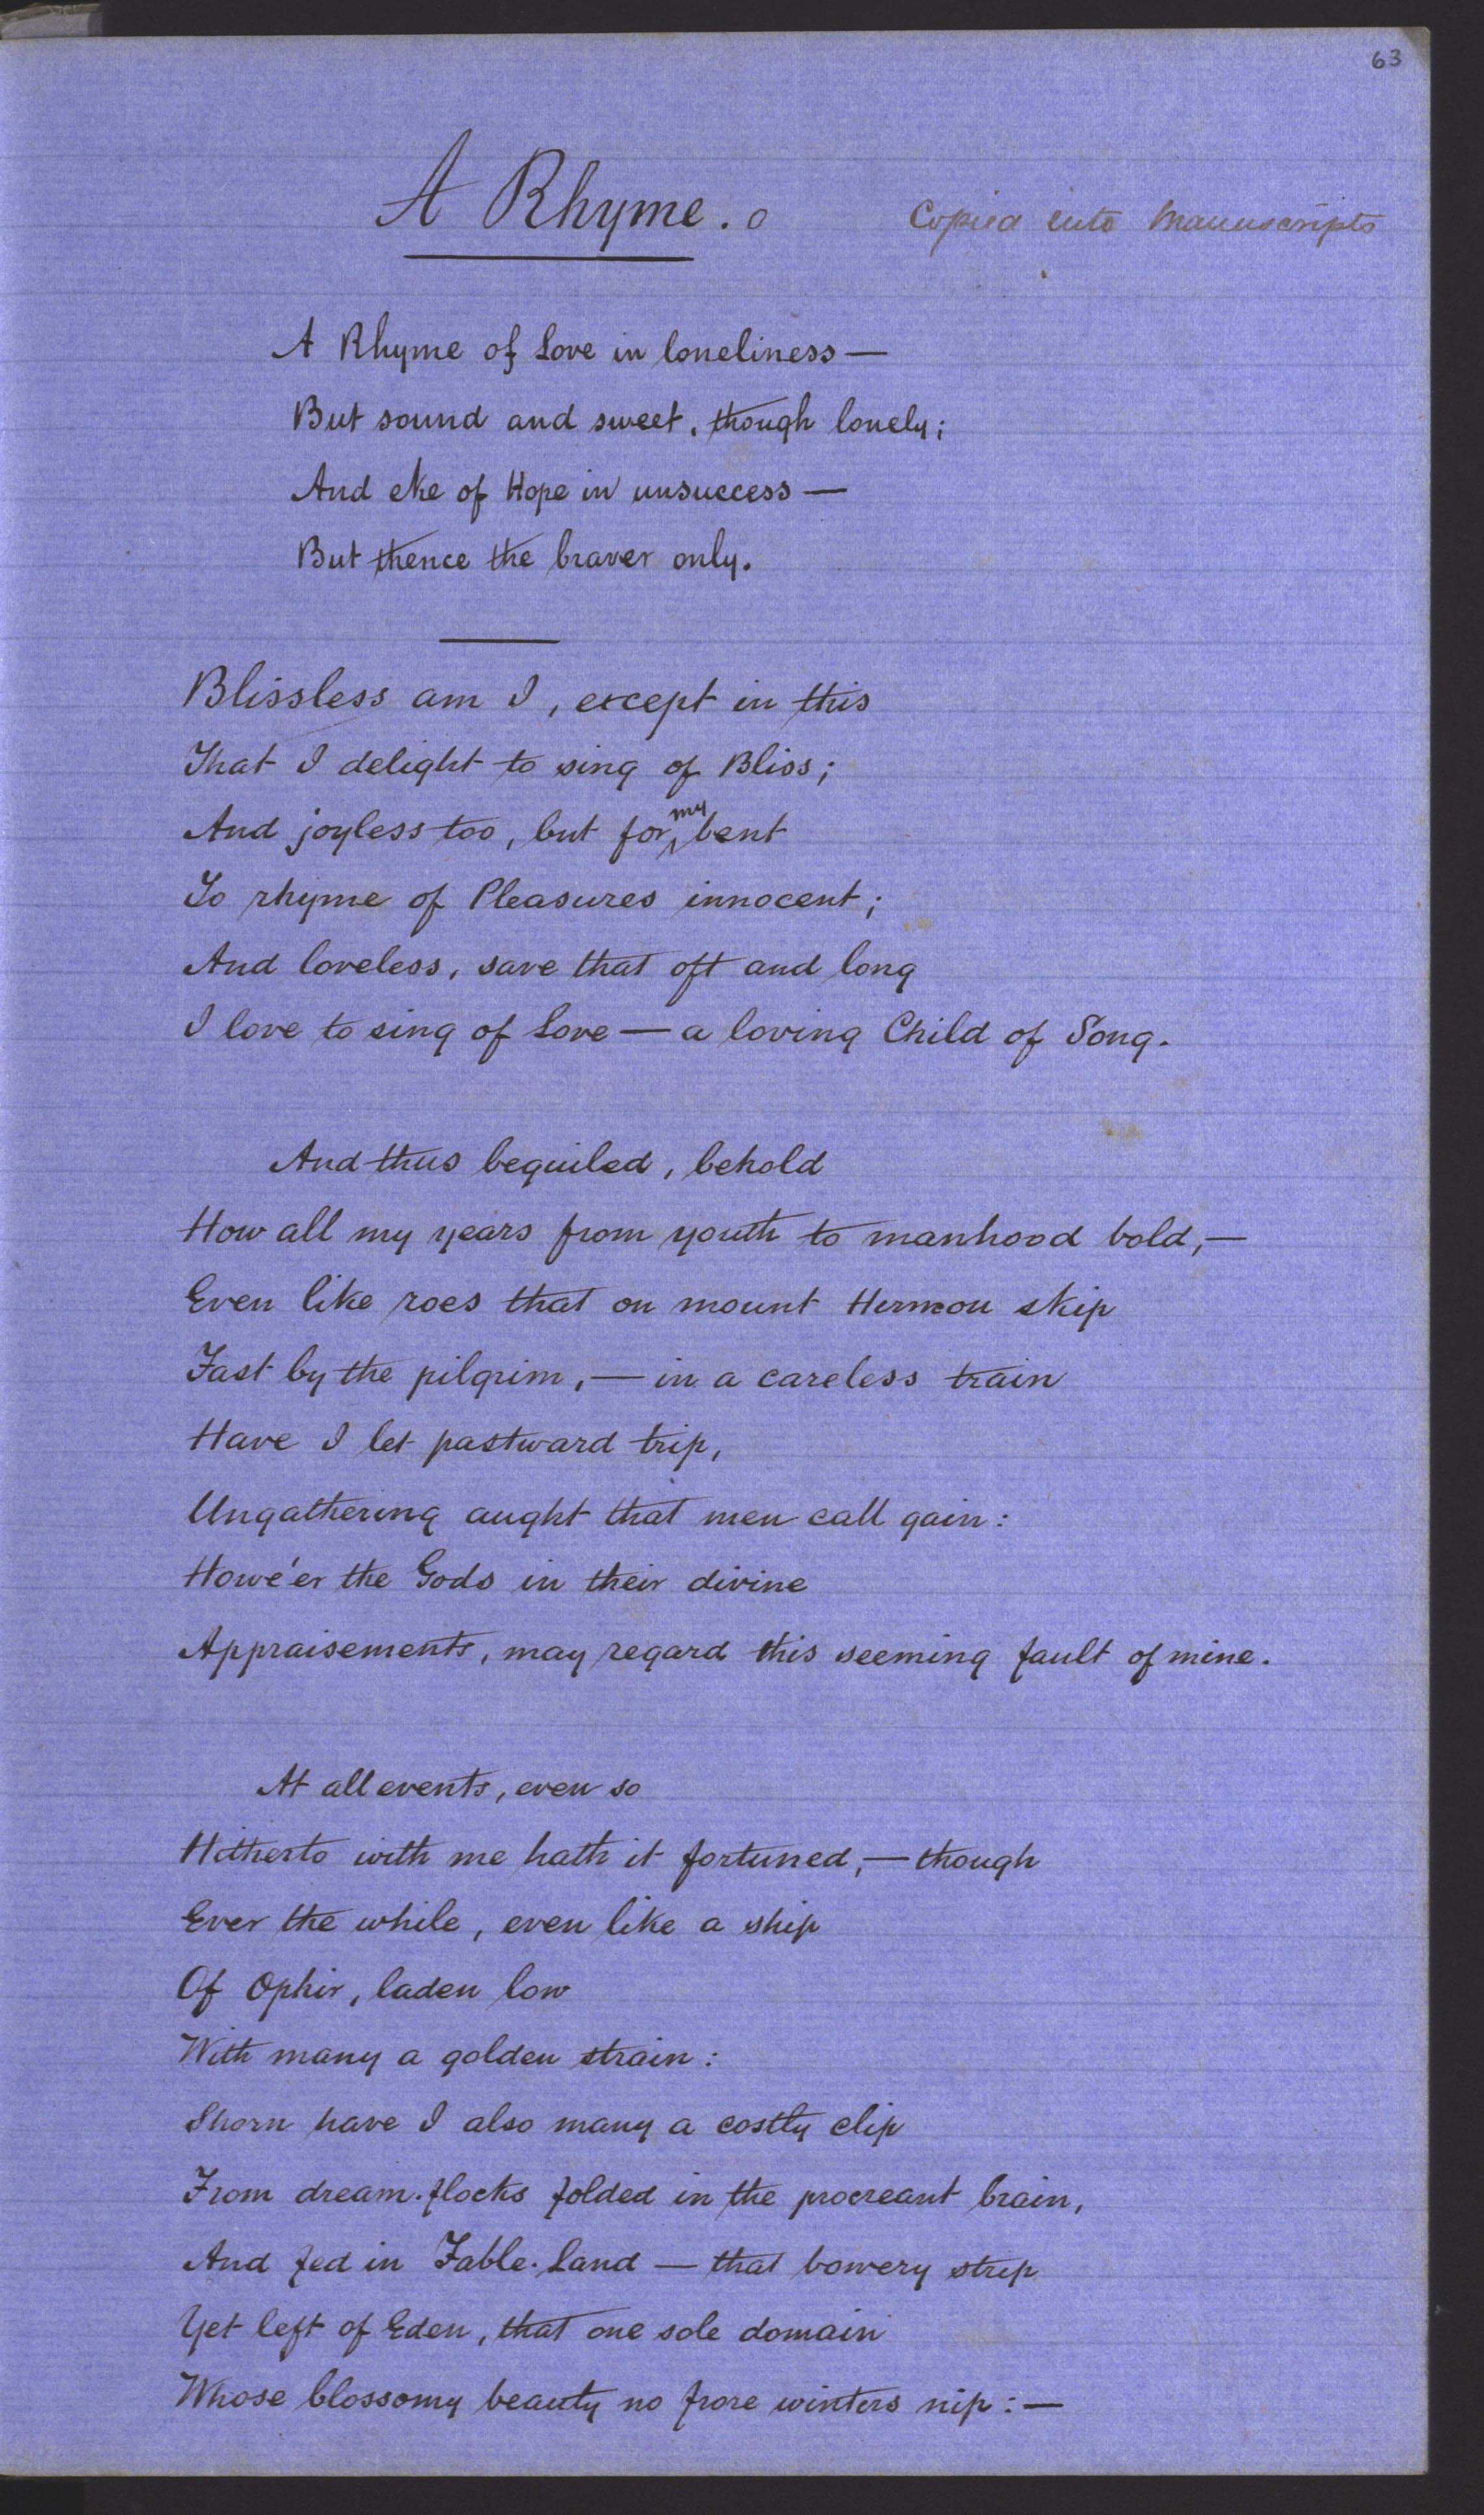 63
A Rhyme. o
Copied into Manuscripts
A Rhyme of Love in loneliness —
But sound and sweet, though lonely;
And eke of Hope in unsuccess —
But thence the braver only.
Blissless am I, except in this
That I delight to sing of Bliss;
And joyless too, but for my bent
To rhyme of Pleasures innocent;
And loveless, save that oft and long
I love to sing of Love — a loving Child of Song.
And thus beguiled, behold
How all my years from youth to manhood bold, —
Even like roes that on mount Hermon skip
Fast by the pilgrim, — in a careless train
Have I let pastward trip,
Ungathering aught that men call gain:
Howe'er the Gods in their divine
Appraisements, may regard this seeming fault of mine.
At all events, even so
Hitherto with me hath it fortuned, — though
Ever the while, even like a ship
Of Ophir, laden low
With many a golden strain:
Shorn have I also many a costly clip
From dream-flocks folded in the procreant brain,
And fed in Fable-Land — that bowery strip
Yet left of Eden, that one sole domain
Whose blossomy beauty no frore winters nip: —